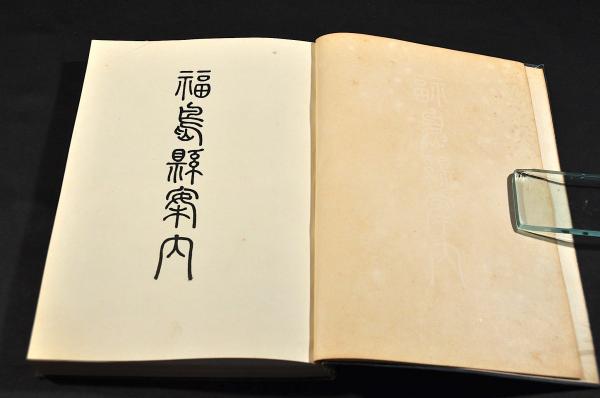 福島縣案内